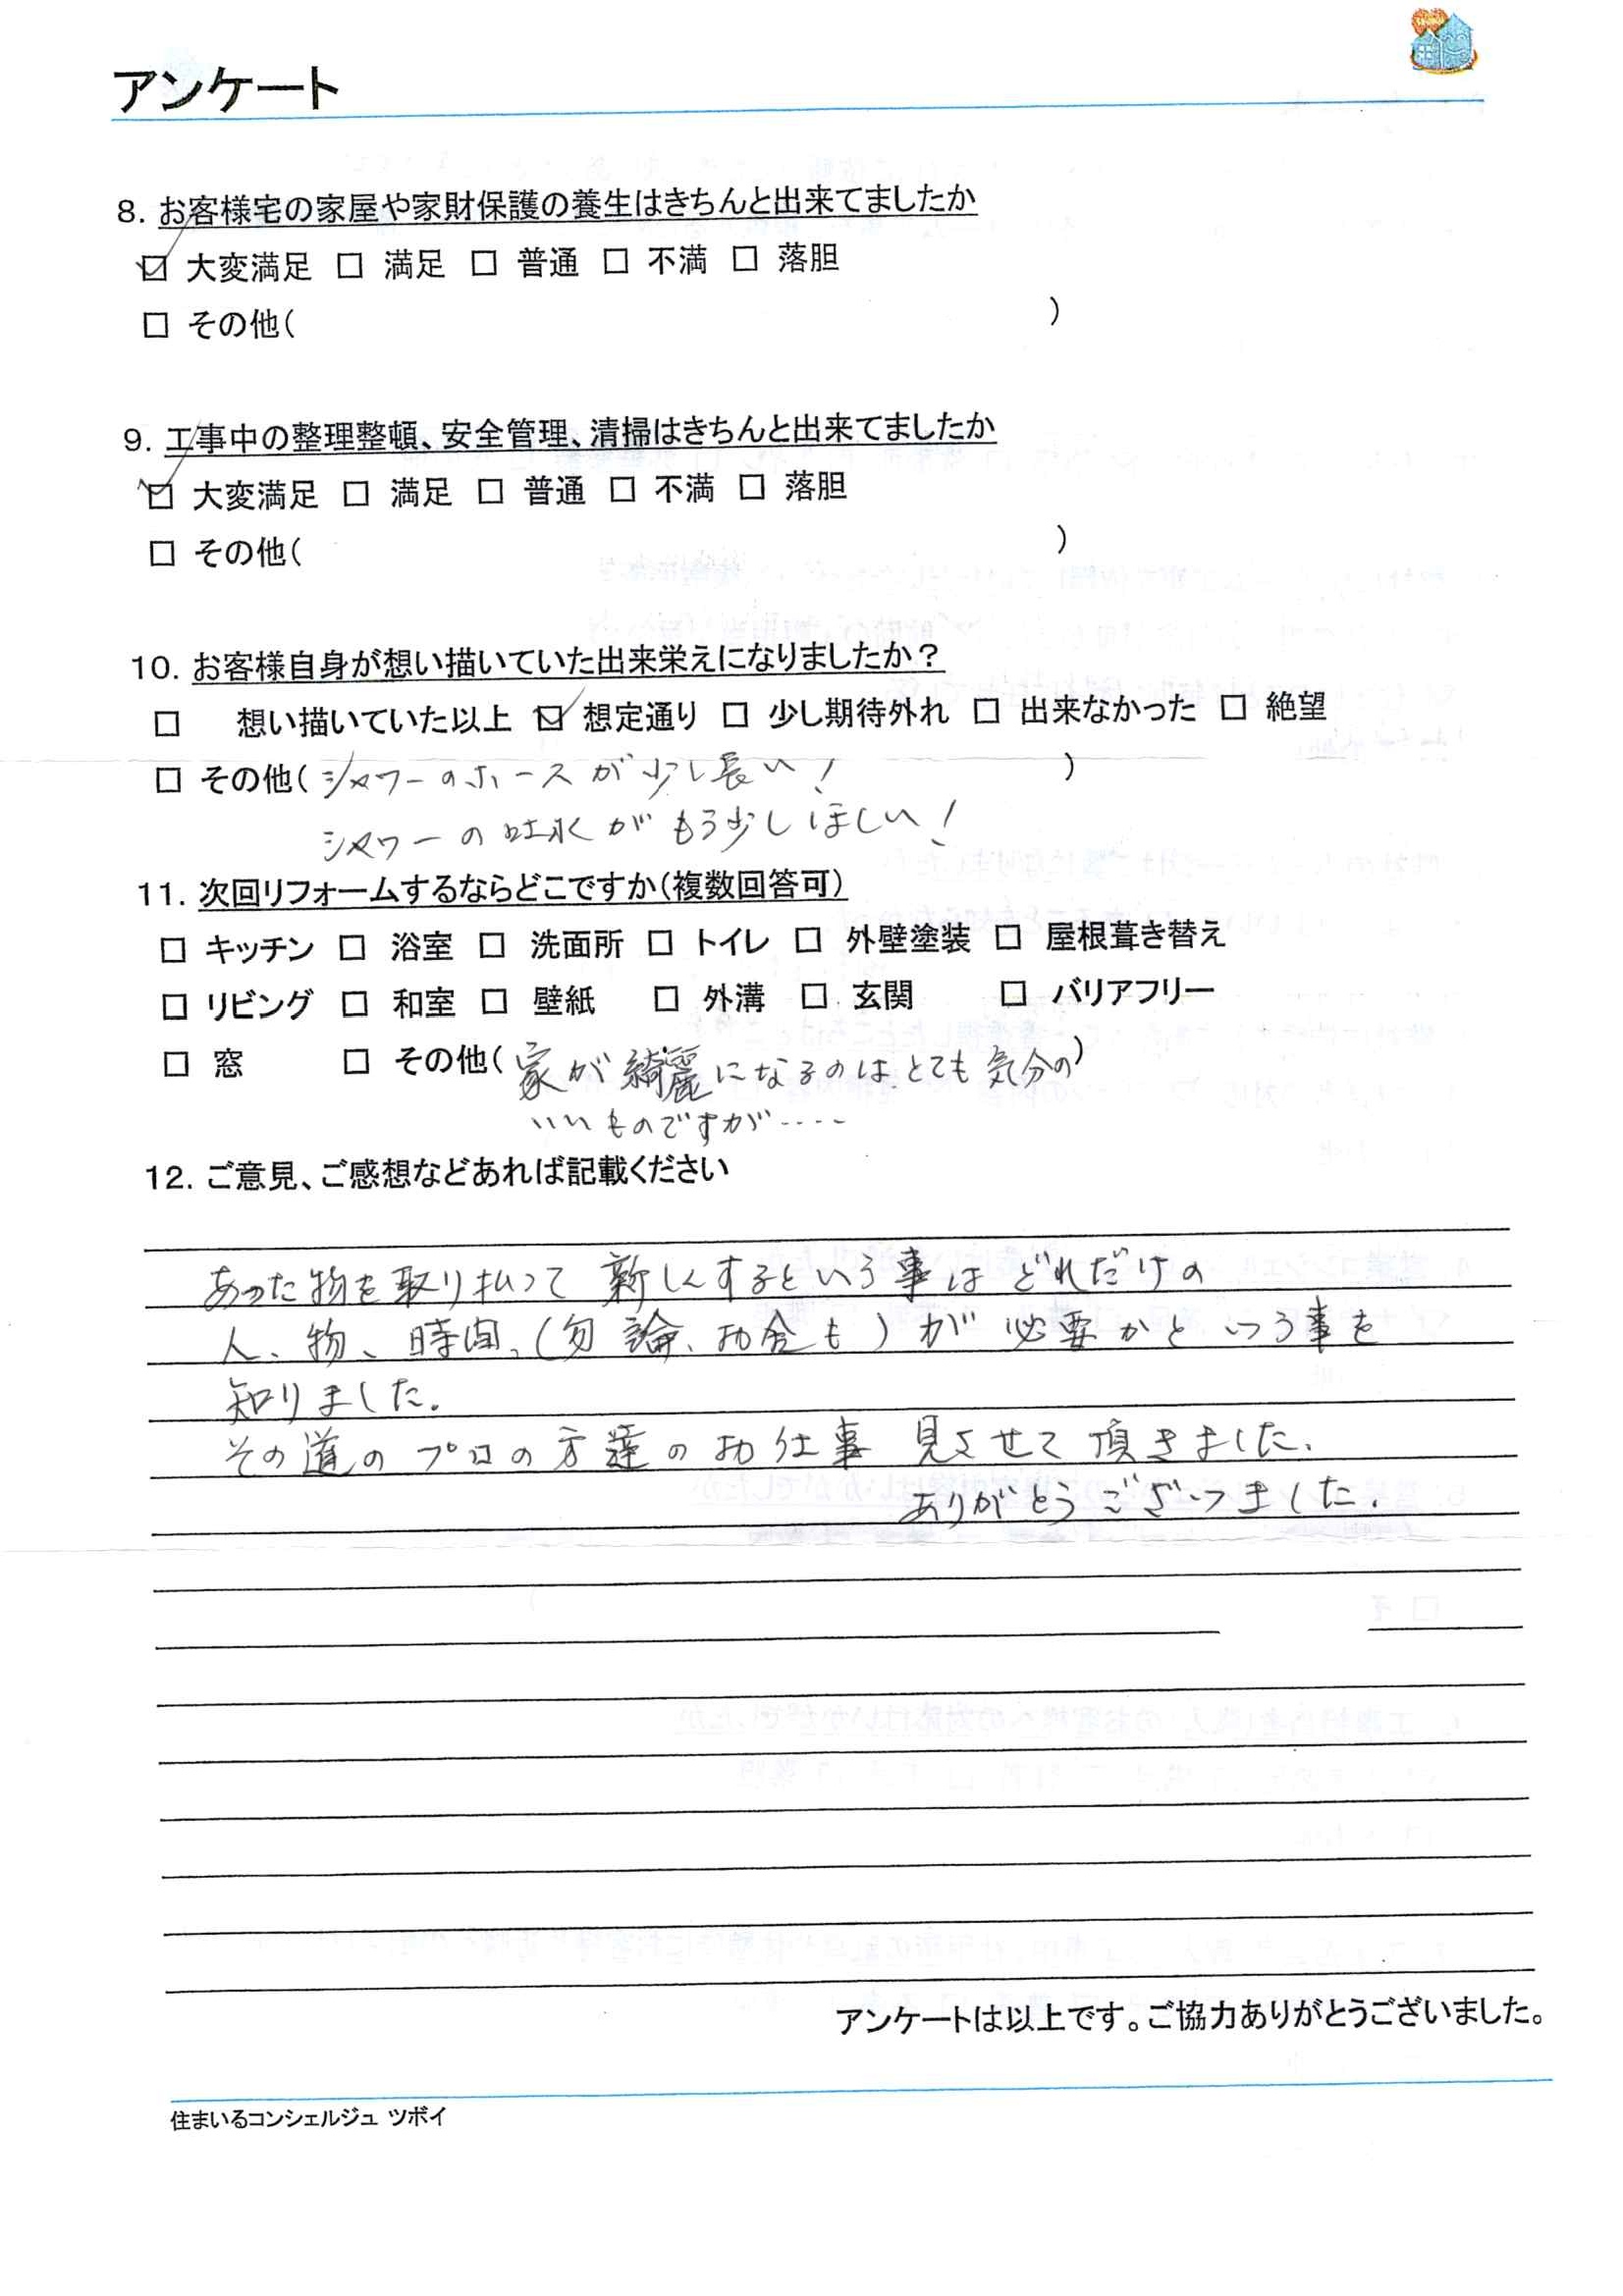 アンケート
8. お客様宅の家屋や家財保護の養生はきちんと出来てましたか
☑ 大変満足 □ 満足 □ 普通 □ 不満 □ 落胆
□ その他( )
9. 工事中の整理整頓、安全管理、清掃はきちんと出来てましたか
☑ 大変満足 □ 満足 □ 普通 □ 不満 □ 落胆
□ その他( )
10. お客様自身が想い描いていた出来栄えになりましたか？
□ 想い描いていた以上 ☑ 想定通り □ 少し期待外れ □ 出来なかった □ 絶望
□ その他( シャワーのホースが少し長い！ )
シャワーの吐水がもう少しほしい！
11. 次回リフォームするならどこですか(複数回答可)
□ キッチン □ 浴室 □ 洗面所 □ トイレ □ 外壁塗装 □ 屋根葺き替え
□ リビング □ 和室 □ 壁紙 □ 外溝 □ 玄関 □ バリアフリー
□ 窓 □ その他( 家が綺麗になるのはとても気分の )
いいものですが‥‥
12. ご意見、ご感想などあれば記載ください
あった物を取り払って新しくするという事はどれだけの
人、物、時間、(勿論、お金も)が必要かという事を
知りました。
その道のプロの方達のお仕事見させて頂きました。
ありがとうございました。
アンケートは以上です。ご協力ありがとうございました。
住まいるコンシェルジュ ツボイ